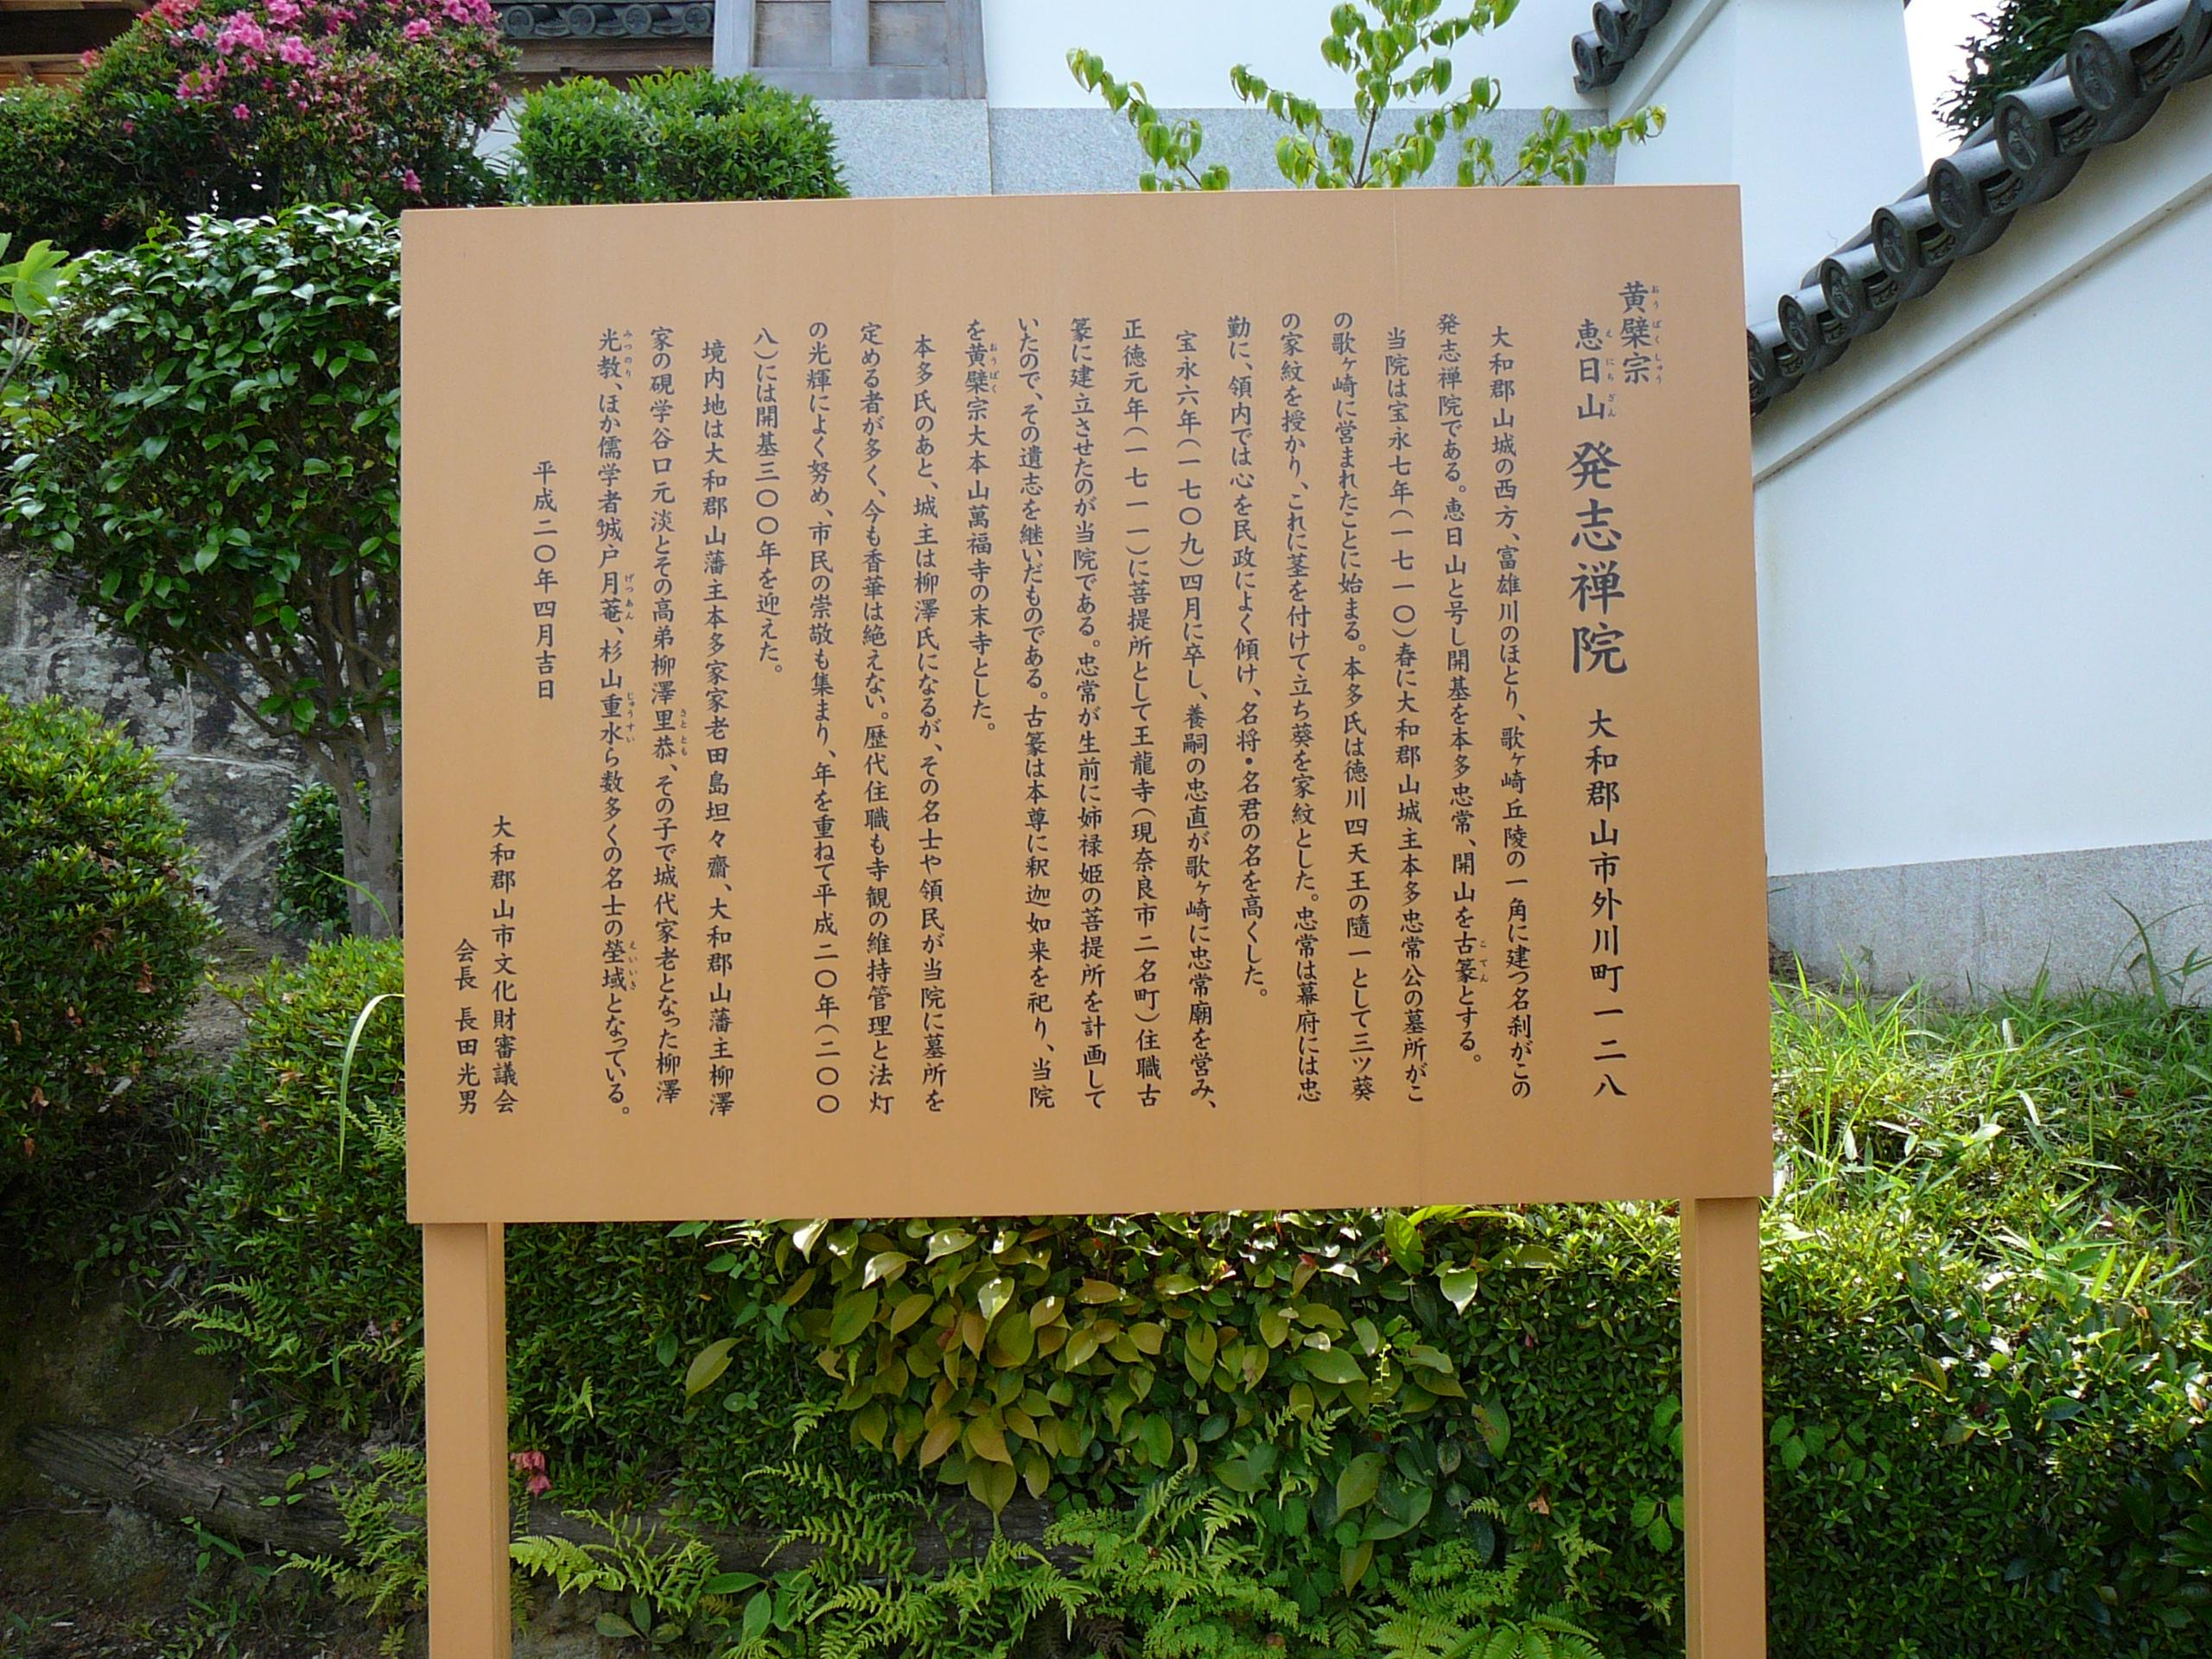 黄檗宗
恵日山 発志禅院 大和郡山市外川町一二八
大和郡山城の西方、富雄川のほとり、歌ヶ崎丘陵の一角に建つ名刹がこの
発志禅院である。恵日山と号し開基を本多忠常、開山を古篆とする。
当院は宝永七年(一七一〇)春に大和郡山城主本多忠常公の墓所がこ
の歌ヶ崎に営まれたことに始まる。本多氏は徳川四天王の隨一として三ツ葵
の家紋を授かり、これに茎を付けて立ち葵を家紋とした。忠常は幕府には忠
勤に、領内では心を民政によく傾け、名将・名君の名を高くした。
宝永六年(一七〇九)四月に卒し、養嗣の忠直が歌ヶ崎に忠常廟を営み、
正徳元年(一七一一)に菩提所として王龍寺(現奈良市二名町)住職古
篆に建立させたのが当院である。忠常が生前に姉禄姫の菩提所を計画して
いたので、その遺志を継いだものである。古篆は本尊に釈迦如来を祀り、当院
を黄檗宗大本山萬福寺の末寺とした。
本多氏のあと、城主は柳澤氏になるが、その名士や領民が当院に墓所を
定める者が多く、今も香華は絶えない。歴代住職も寺観の維持管理と法灯
の光輝によく努め、市民の崇敬も集まり、年を重ねて平成二〇年(二〇〇
八)には開基三〇〇年を迎えた。
境内地は大和郡山藩主本多家家老田島坦々齋、大和郡山藩主柳澤
家の硯学谷口元淡とその高弟柳澤里恭、その子で城代家老となった柳澤
光教、ほか儒学者城戸月菴、杉山重水ら数多くの名士の塋域となっている。
平成二〇年四月吉日
大和郡山市文化財審議会
会長 長田光男